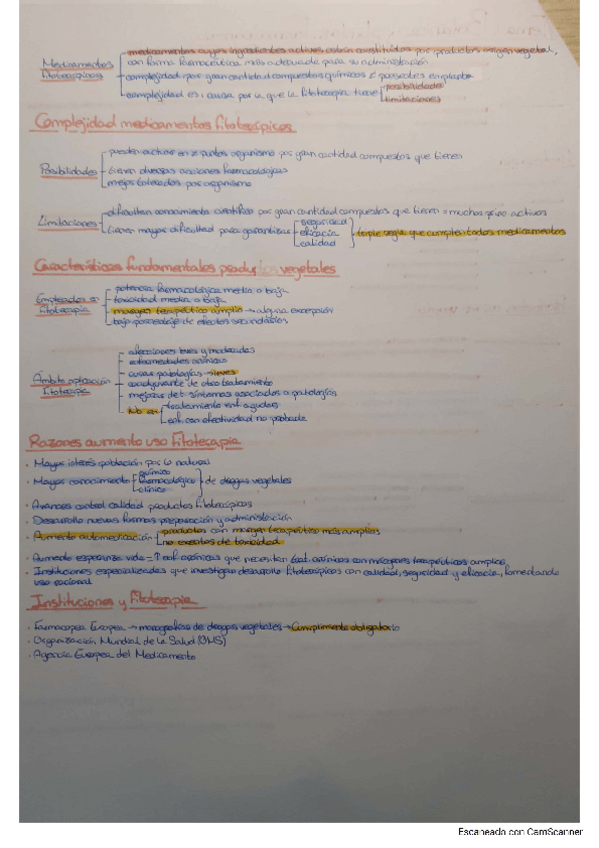 medicamentos cuyos ingredientes activos están constituidos por productos origen vegetal,
Medicamentos
fitoterápicos
con forma farmacéutica más adecuada para su administración
complejidad por gran cantidad compuestos químicos
complejidad es causa por la que la fitoterapia tiene
posibilidades
limitaciones
Complejidad medicamentos fitoterápicos
Posibilidades
pueden actuar en puntos organismo por gran cantidad compuestos que tienen
tienen diversas acciones farmacológicas
mejor tolerados por organismo
Limitaciones
dificultan conocimiento científico por gran cantidad compuestos que tienen = muchos activos
tienen mayor dificultad para garantizar
seguridad
eficacia
calidad
triple regla que cumplen todos medicamentos
Características fundamentales productos vegetales
Empleados en
fitoterapia
potencia farmacológica media o baja
toxicidad media o baja
margen terapéutico amplio → alguna excepción
bajo porcentaje de efectos secundarios
Ámbito aplicación
fitoterapia
afecciones leves y moderadas
enfermedades crónicas
curar patologías → leves
coadyuvante de otro tratamiento
mejorar det. síntomas asociados a patologías
No en
tratamiento enf. agudas
enf. con efectividad no probada
Razones aumento uso fitoterapia
· Mayor interés población por lo natural
· Mayor conocimiento
químico
farmacológico
clínico
de drogas vegetales
· Avances control calidad productos fitoterápicos
· Desarrollo nuevas formas preparación y administración
· Aumento automedicación
productos con margen terapéutico más amplios
no exentos de toxicidad
· Aumento esperanza vida = ↑ enf. crónicas que necesitan trat. crónicos con márgenes terapéuticos amplios
· Instituciones especializadas que investigan desarrollo fitoterápicos con calidad, seguridad y eficacia, fomentando
uso racional
Instituciones y Fitoterapia
· Farmacopea Europea → monografías de drogas vegetales → Cumplimiento obligatorio
· Organización Mundial de la Salud (OMS)
· Agencia Europea del Medicamento
Escaneado con CamScanner